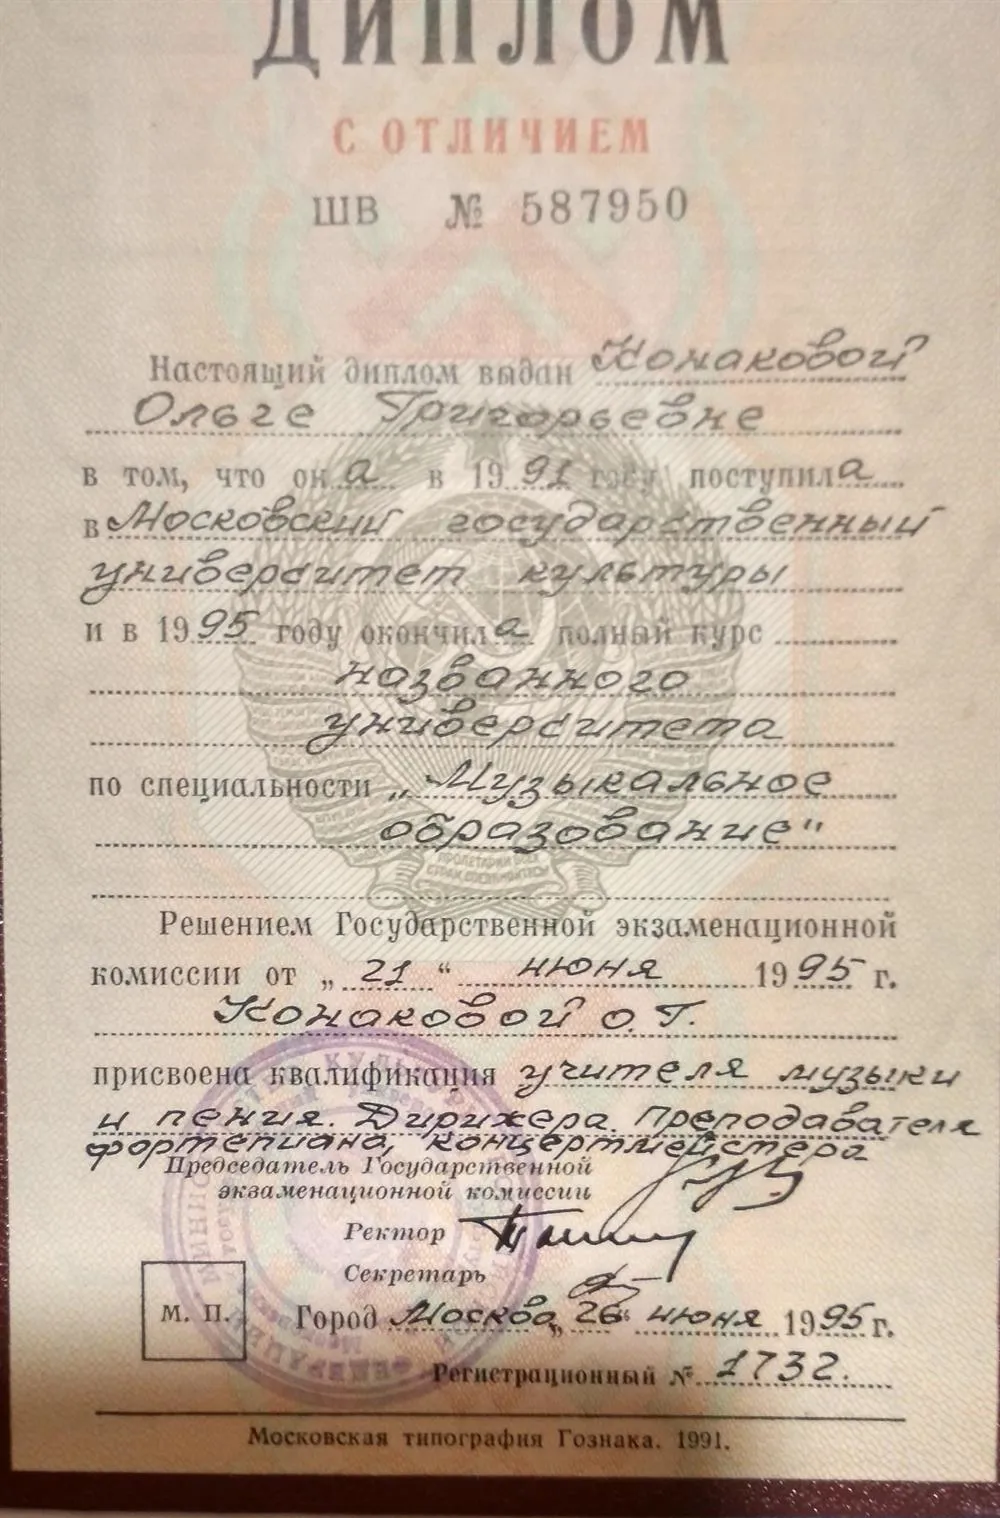 ДИПЛОМ
С ОТЛИЧИЕМ
ШВ № 587950
Настоящий диплом выдан Конаковой
Ольге Григорьевне
в том, что она в 1991 году поступила
в Московский государственный
университет культуры
и в 1995 году окончила полный курс
названного
университета
по специальности „Музыкальное
образование"
Решением Государственной экзаменационной
комиссии от „21“ июня 1995 г.
Конаковой О.Г.
присвоена квалификация учителя музыки
и пения. Дирижера. Преподавателя
фортепиано, концертмейстера
Председатель Государственной
экзаменационной комиссии
Ректор
Секретарь
М. П.
Город Москва, „26“ июня 1995 г.
Регистрационный № 1732.
Московская типография Гознака. 1991.